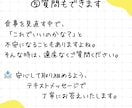 ⑤質問もできます
食事を見直す中で、
「これでいいのかな？」と
不安になることもありますよね。
そんな時は、遠慮なくご質問ください。
安心して取り組めるよう、
テキストメッセージで
丁寧にお答えいたします。